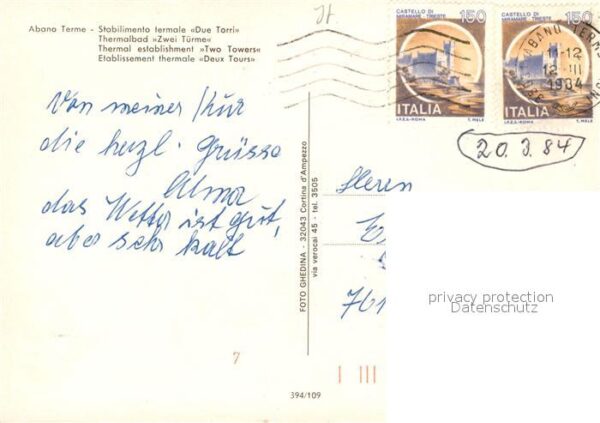 Abano Terme - Stabilimento termale «Due Torri»
Thermalbad »Zwei Türme«
Thermal establishment »Two Towers«
Etablissement thermale «Deux Tours»
It
CASTELLO DI MIRAMARE - TRIESTE 150
ITALIA
I.P.Z.S.-ROMA T. MELE
CASTELLO DI MIRAMARE - TRIESTE 150
ITALIA
I.P.Z.S.-ROMA T. MELE
ABANO TERME
12 III
1984
20.3.84
Von meiner Kur
die herzl. Grüsse
Alma
das Wetter ist gut,
aber sehr kalt
Herrn
761
FOTO GHEDINA - 32043 Cortina d'Ampezzo
via verocai 45 - tel. 3505
7
394/109
privacy protection
Datenschutz